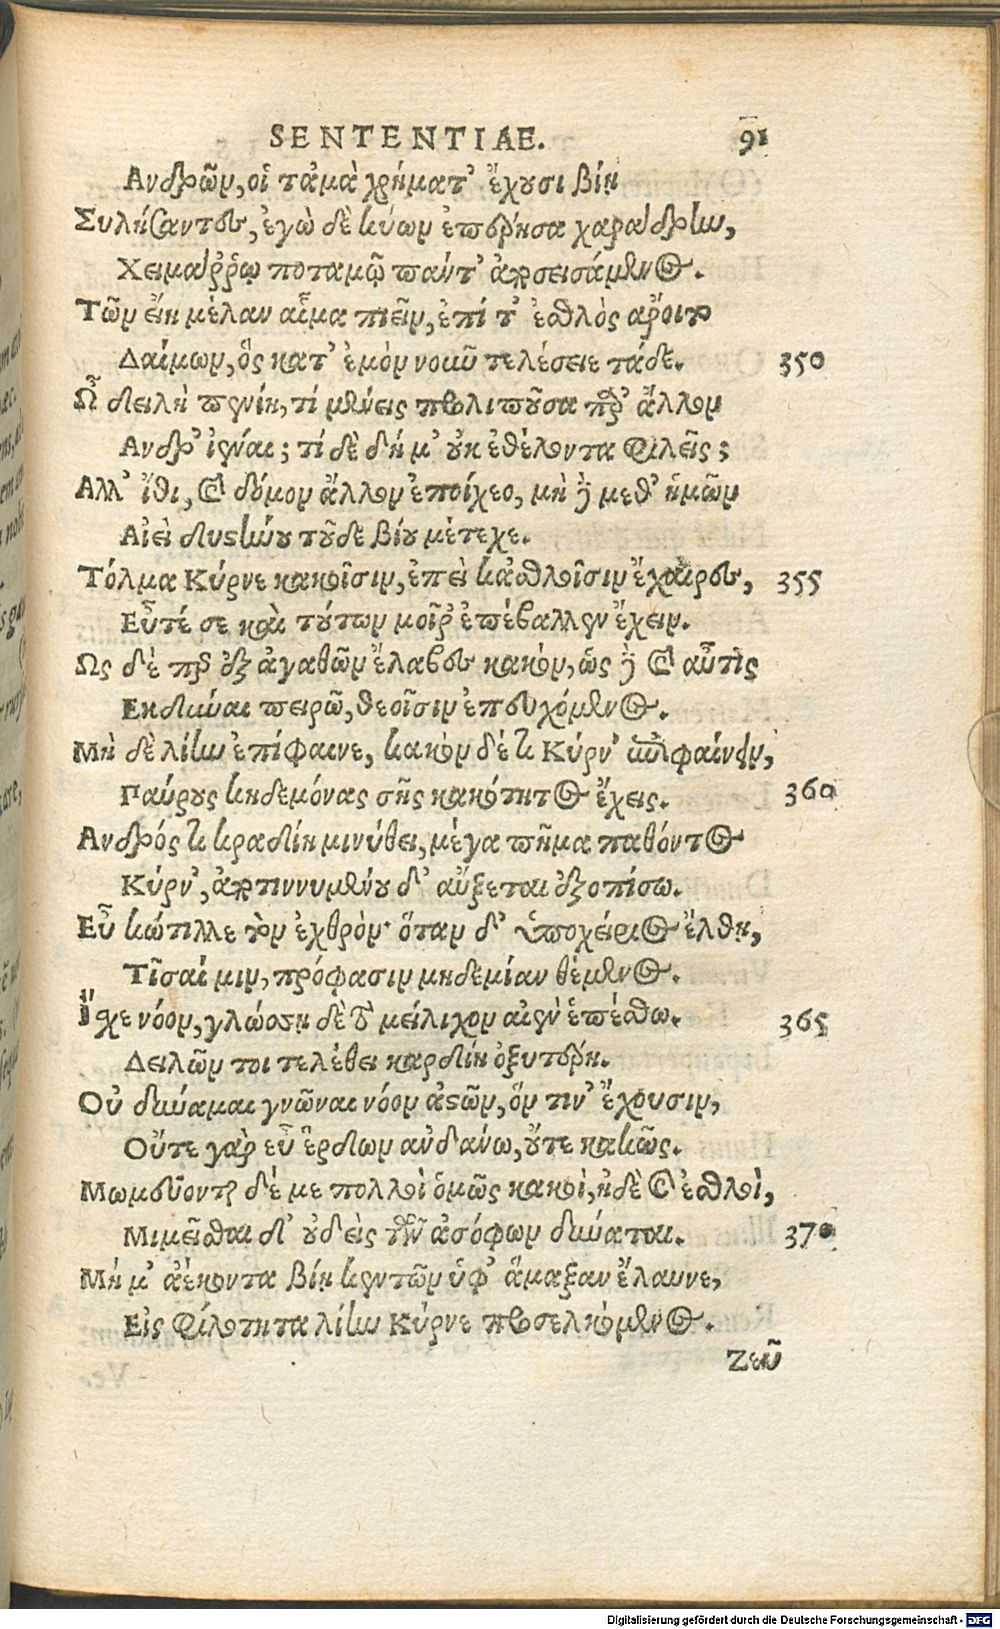 SENTENTIAE. 91
Ανδρῶν, οἳ τἀμὰ χρήματ' ἔχουσι βίῃ
Συλήσαντες, ἐγὼ δὲ κύων ἐπέρησα χαράδρην,
Χειμάῤῥῳ ποταμῷ πάντ' ἀποσεισάμενος.
Τῶν εἴη μέλαν αἷμα πιεῖν, ἐπί τ' ἐσθλὸς ὄροιτο
Δαίμων, ὃς κατ' ἐμὸν νοῦν τελέσειε τάδε. 350
Ὦ δειλὴ πενίη, τί μένεις προλιποῦσα παρ' ἄλλον
Ανδρ' ἰέναι; τί δὲ δή μ' οὐκ ἐθέλοντα φιλεῖς;
Αλλ' ἴθι, καὶ δόμον ἄλλον ἐποίχεο, μὴ δὲ μεθ' ἡμῶν
Αἰεὶ δυστήνου τοῦδε βίου μέτεχε.
Τόλμα Κύρνε κακοῖσιν, ἐπεὶ κἀσθλοῖσιν ἔχαιρες, 355
Εὖτέ σε καὶ τούτων μοῖρ' ἐπέβαλλεν ἔχειν.
Ως δέ περ ἐξ ἀγαθῶν ἔλαβες κακὸν, ὣς δὲ καὶ αὖτις
Εκδῦναι πειρῶ, θεοῖσιν ἐπευχόμενος.
Μὴ δὲ λίην ἐπίφαινε, κακὸν δέ τε Κύρν' ἐπιφαίνειν,
Παύρους κηδεμόνας σῆς κακότητος ἔχεις. 360
Ανδρός τε κραδίη μινύθει, μέγα πῆμα παθόντος
Κύρν', ἀποτιννυμένου δ' αὔξεται ἐξοπίσω.
Εὖ κώτιλλε τὸν ἐχθρόν· ὅταν δ' ὑποχείριος ἔλθῃ,
Τῖσαί μιν, πρόφασιν μηδεμίαν θέμενος.
Ἴσχε νόον, γλώσσῃ δὲ τὸ μείλιχον αἰὲν ἐπέσθω. 365
Δειλῶν τοι τελέθει καρδίη ὀξυτέρη.
Οὐ δύναμαι γνῶναι νόον ἀστῶν, ὅν τιν' ἔχουσιν,
Οὔτε γὰρ εὖ ἔρδων ανδάνω, οὔτε κακῶς.
Μωμεῦνται δέ με πολλοὶ ὁμῶς κακοὶ, ἠδὲ καὶ ἐσθλοὶ,
Μιμεῖσθαι δ' οὐδεὶς τῶν ἀσόφων δύναται. 370
Μή μ' ἀέκοντα βίῃ κεντῶν ὑφ' ἅμαξαν ἔλαυνε,
Εἰς φιλότητα λίην Κύρνε προσελκόμενος.
Ζεῦ
Digitalisierung gefördert durch die Deutsche Forschungsgemeinschaft - DFG